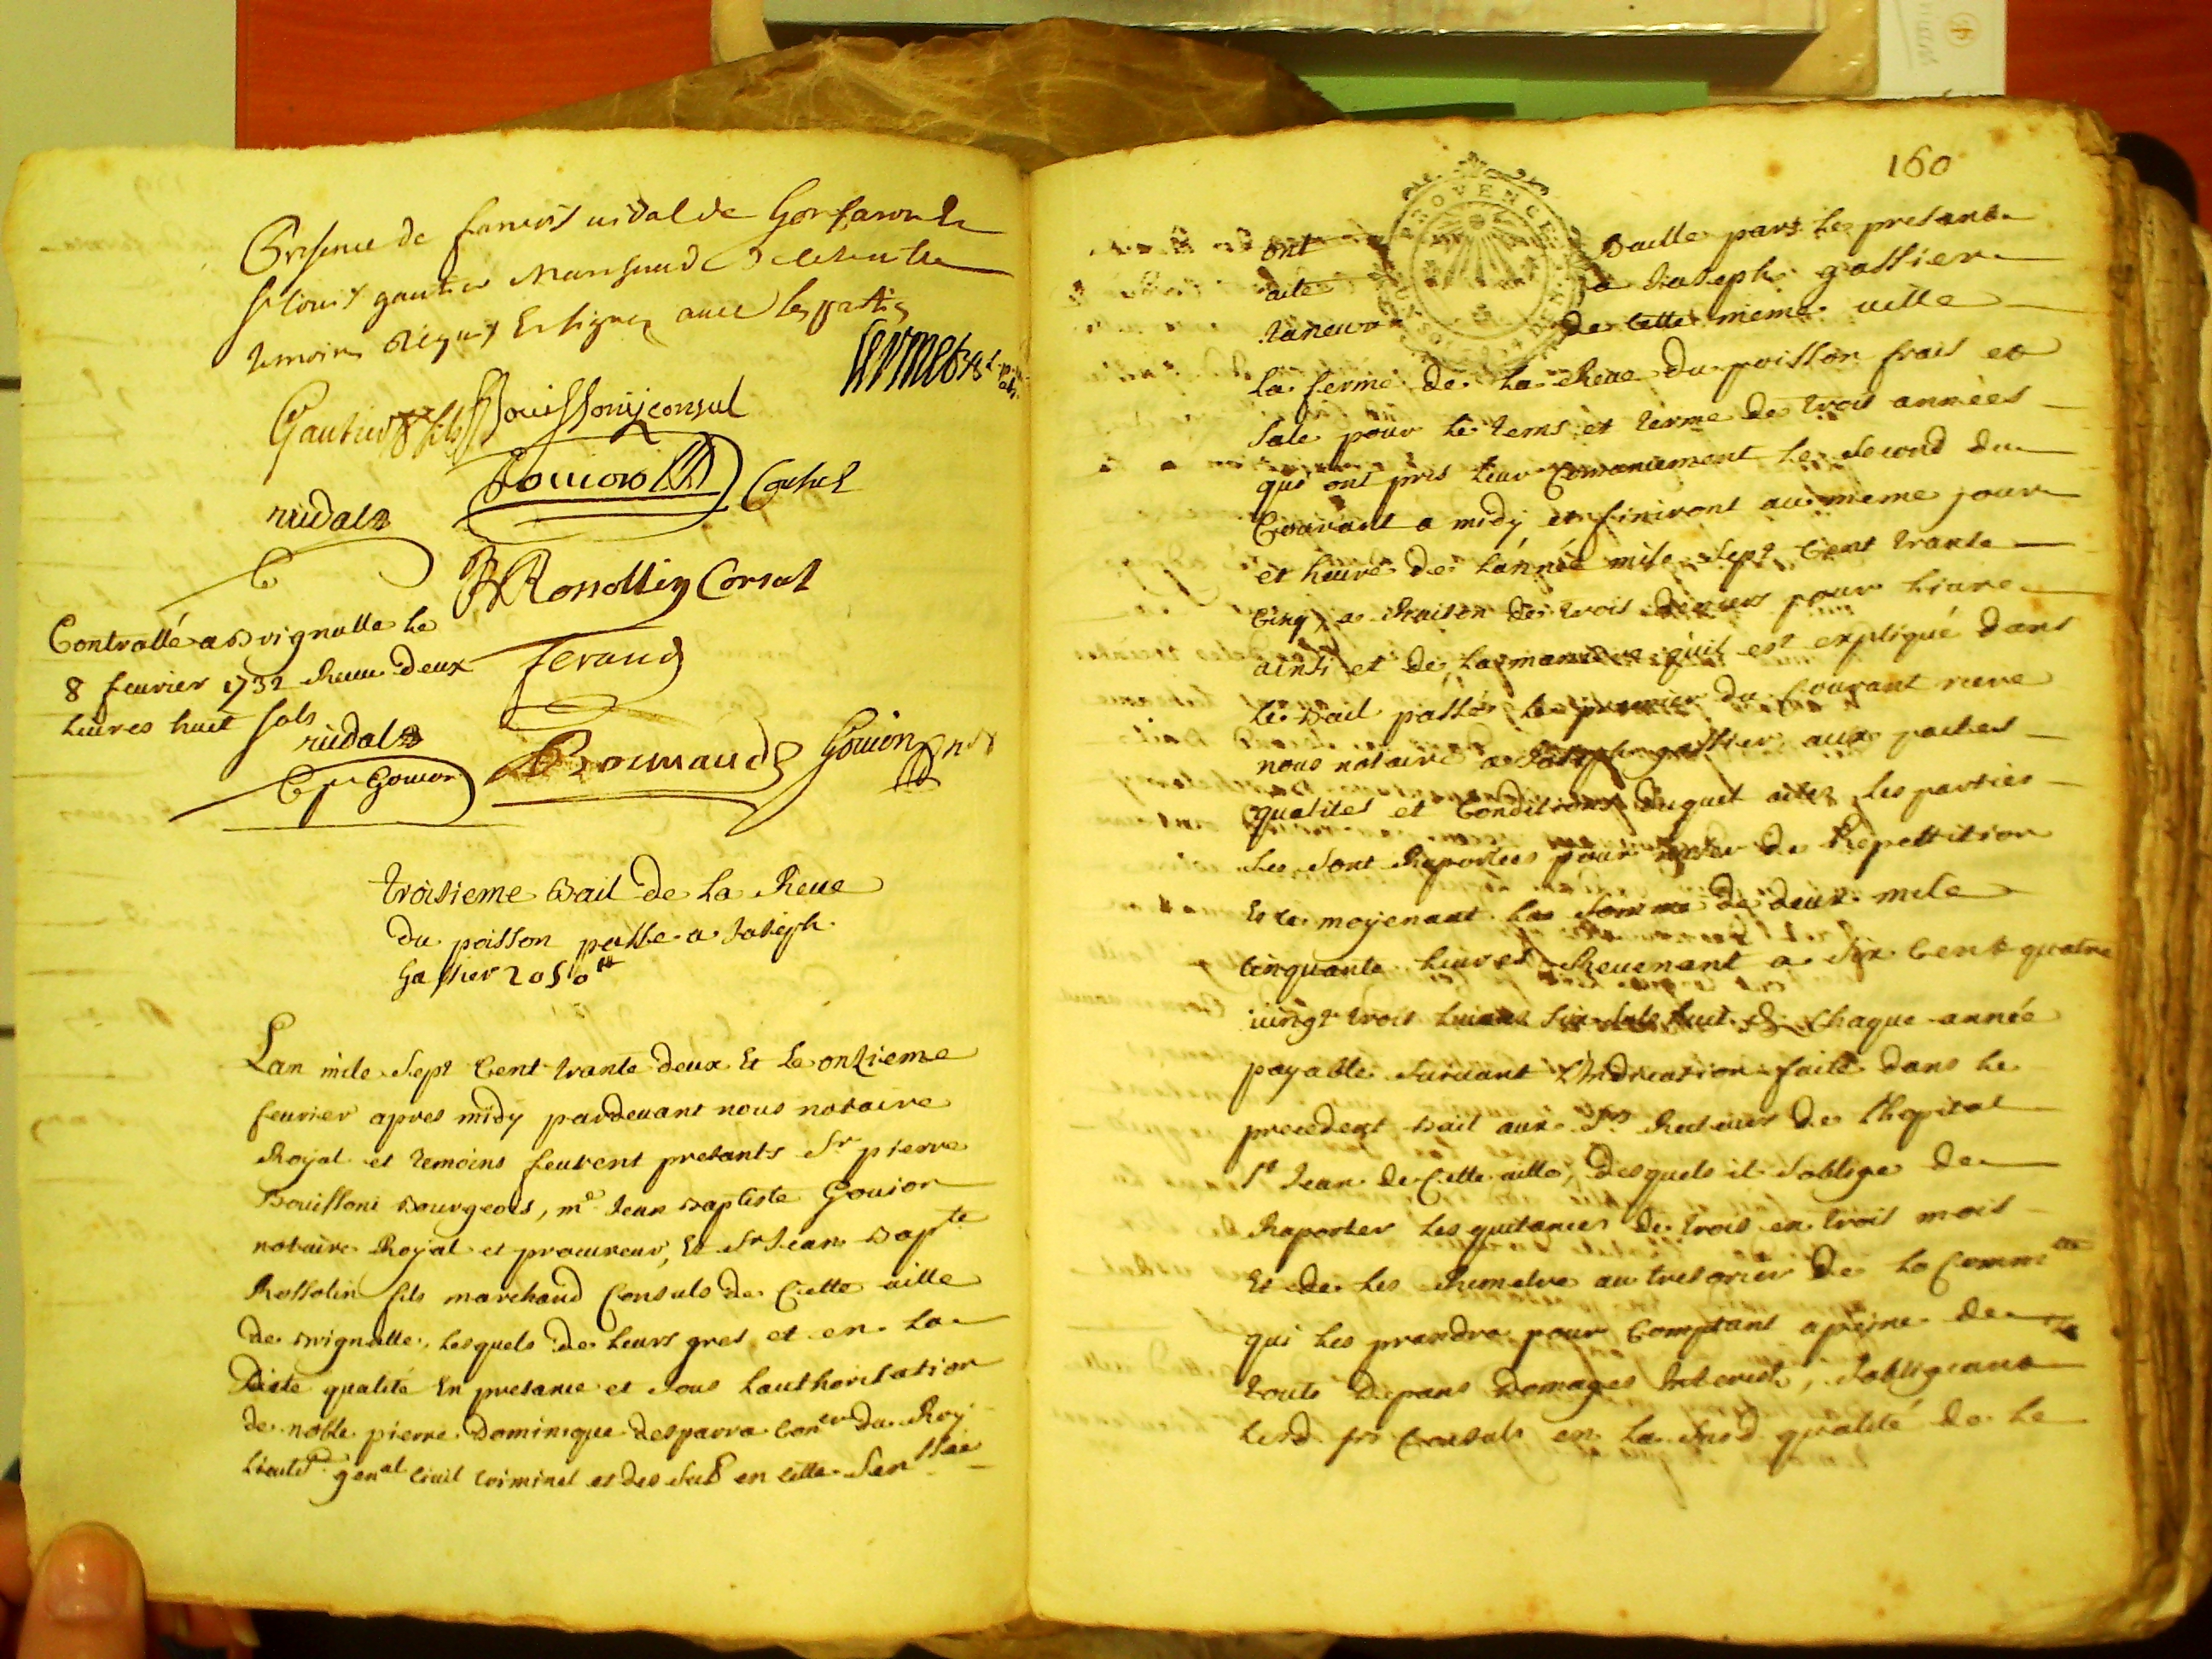 Presence de francois vidal de Gonfaron &
sr louis gautier Marchand de cette ville
temoins requis Et signez avec les parties
Gautier fils Bouissony consul
Gouion Consul
vidal
Rossollin Consul
Controllé a Brignolle le
8 fevrier 1732 Receu deux
livres huit sols
vidal
feraud
Gouion nre
troisieme Bail de la Reve
du poisson passe a Joseph
Gassier 2050 #
Lan mile Sept Cent trante deux Et Le onzieme
fevrier apres midy pardevant nous notaire
Royal et temoins feurent presants Sr pierre
Bouissoni Bourgeois, me Jean Baptiste Gouion
notaire Royal et procureur, Et Sr Jean Bapte
Rossolin fils marchand Consuls de Cette ville
de Brignolle, lesquels de leurs gres et en la
Diste qualité En presance et sous lauthorisation
de noble pierre Dominique desparra Coner du Roy
Lieutd genal Civil Criminel et des sub en cette
160
PROVENCE
ont Baille pars le presant
acte a Joseph gassier
de Cette meme ville
la ferme de la Reve du poisson frais et
sale pour le tems et terme de trois années
qui ont pris leur Comancement le second du
Courant a midy et finiront au meme jour
et heure de lannée mile Sept Cent trante
Cinq, a Raison de trois deniers pour livre
ainsi et de la maniere quil est expliqué dans
le Bail passé le premier du Courant riere
nous notaire a Joseph gassier aux pactes
qualites et Conditions duquel actes les parties
se sont Raportees pour de Repettition
Et ce moyenant la somme de deux mile
cinquante livres Revenant a six Cent quatre
vingt trois livres six sols huit d. Chaque année
payable suivant Lindication faite dans le
precedent Bail aux Srs Recteurs de Lhopital
St Jean de Cette ville, desquels il soblige de
Raporter les quitances de trois en trois mois
Et de les Remetre au tresorier de la Commtte
qui les prandra pour Comptant a peine de
touts depans Domages Interest, sobligeant
lesd srs Consuls en la susd qualité de le